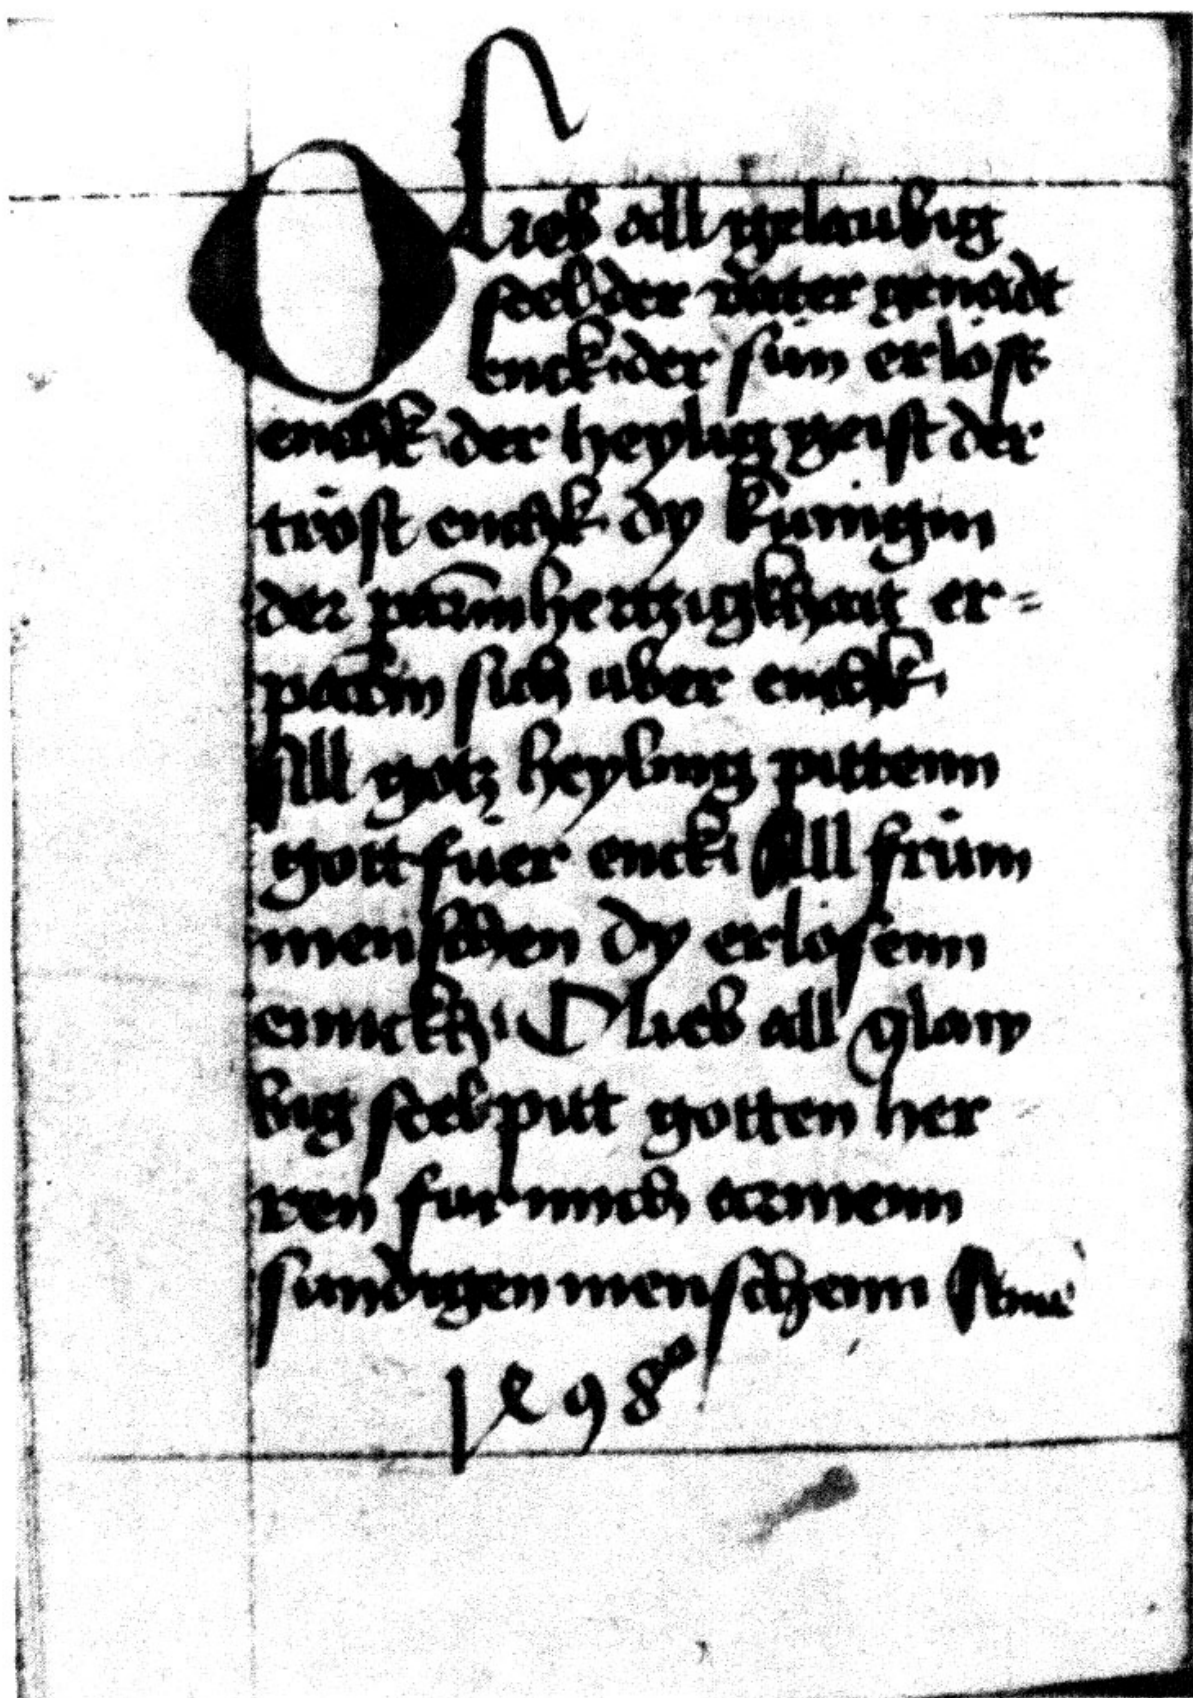 O Lieb all gelaubig
seel der vater genadt
enck der sun erlöst
enckh der heylig geist der
tröst enckh dy künigin
der parmhertzigkhait er=
parm sich uber enckh
All gotz heyling pittenn
gott füer enck All früm
menschen dy erlosenn
ennckh O lieb all glaw
big seel pitt gotten her
ren fur mich armenn
sundigen menschenn Ame
1498°